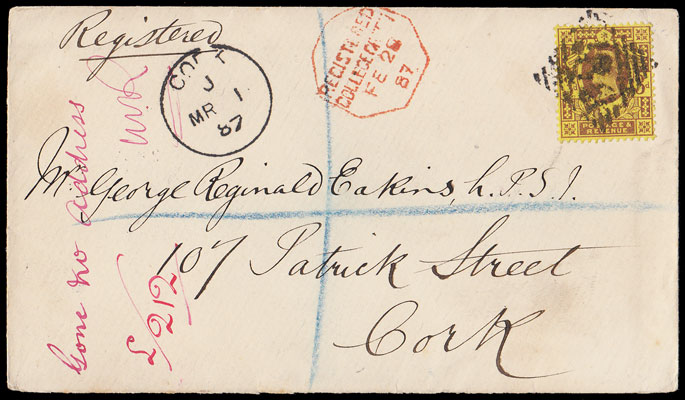 Registered
REGISTERED
COLLEGE GREEN
FE 28
87
CORK
J
MR 1
87
POSTAGE &
REVENUE
Mr George Reginald Eakins, L.P.S.I.
107 Patrick Street
Cork
Gone no address
£/212